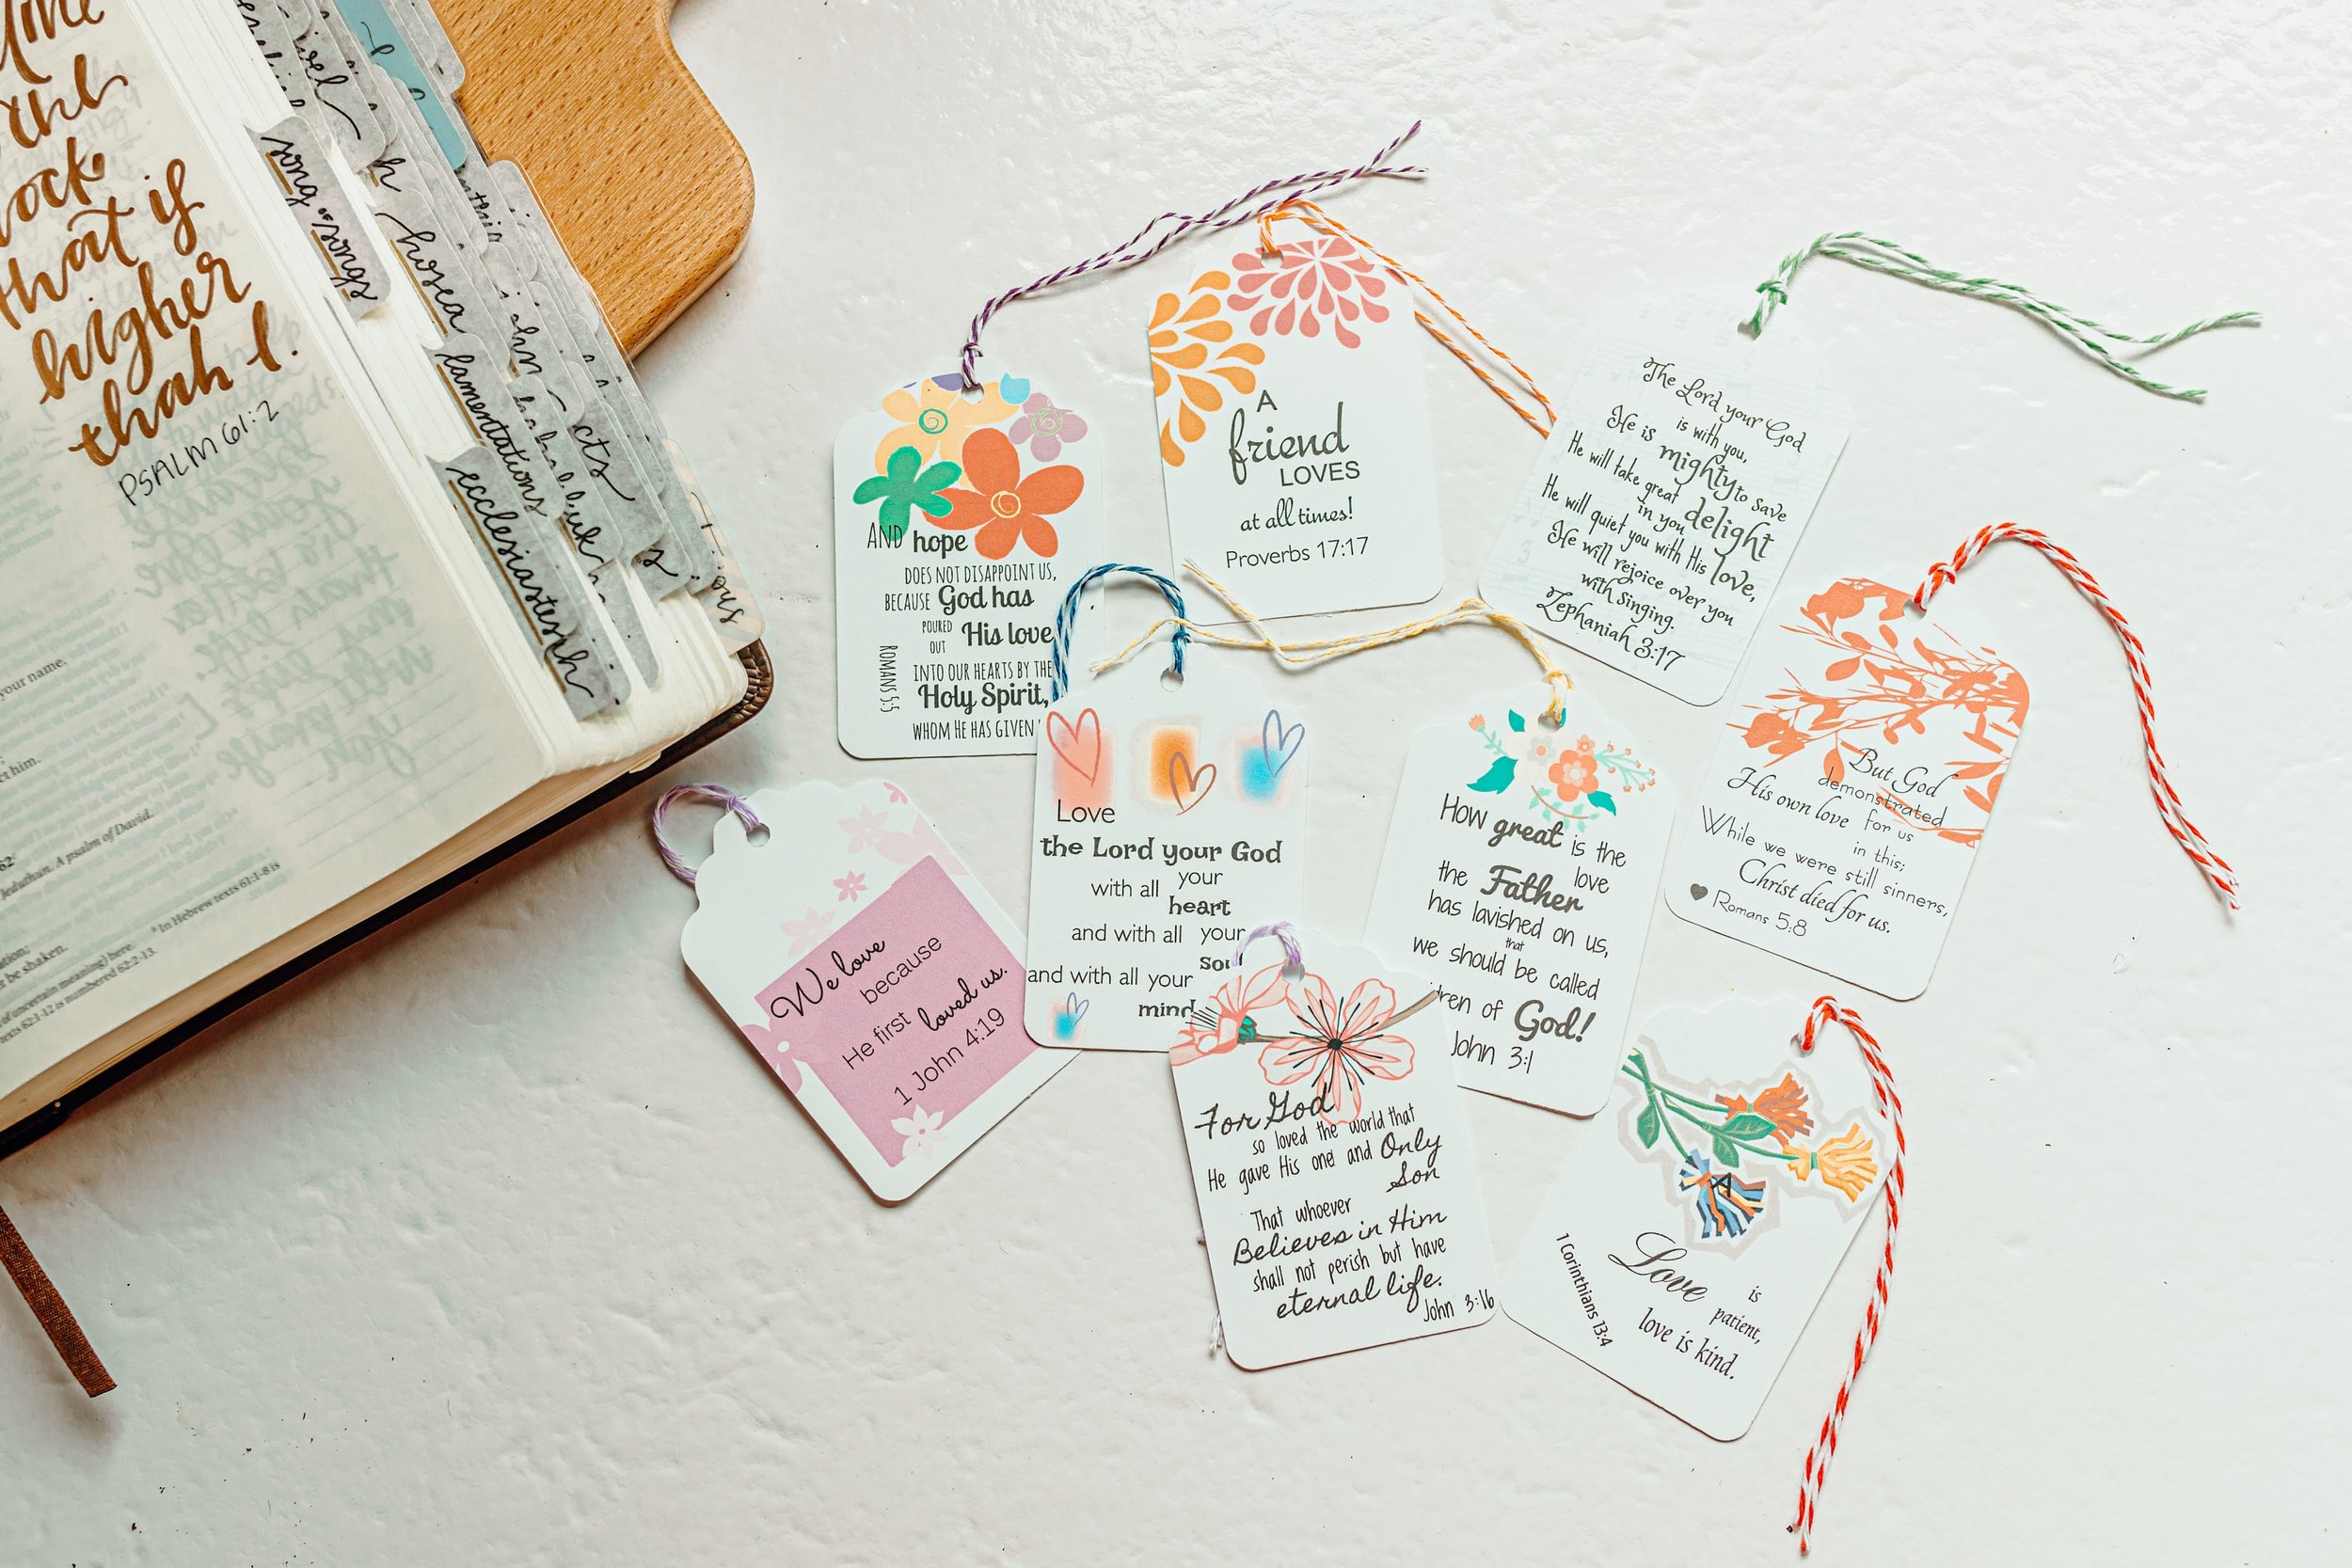 the
that is
higher
than I.
PSALM 61:2
your name.
ct him.
Jeduthun. A psalm of David.
be shaken.
of uncertain meaning) here.
texts 62:1-12 is numbered 62:2-13.
b In Hebrew texts 61:1-8 is
song of songs
hosea
lamentations
ecclesiastes
habakkuk
john
acts
AND hope
DOES NOT DISAPPOINT US,
BECAUSE God has
POURED OUT His love
INTO OUR HEARTS BY THE
Holy Spirit,
WHOM HE HAS GIVEN
ROMANS 5:5
A
friend
LOVES
at all times!
Proverbs 17:17
The Lord your God
is with you,
He is mighty to save
He will take great
in you delight
He will quiet you with His love,
He will rejoice over you
with singing.
Zephaniah 3:17
But God
demonstrated
His own love for us
in this:
While we were still sinners,
Christ died for us.
Romans 5:8
Love
the Lord your God
with all your
heart
and with all your
soul
and with all your
mind
How great is the
love
the Father
has lavished on us,
that
we should be called
ren of God!
John 3:1
We love
because
He first loved us.
1 John 4:19
For God
so loved the world that
He gave His one and Only
Son
That whoever
Believes in Him
shall not perish but have
eternal life.
John 3:16
Love is
patient,
love is kind.
1 Corinthians 13:4